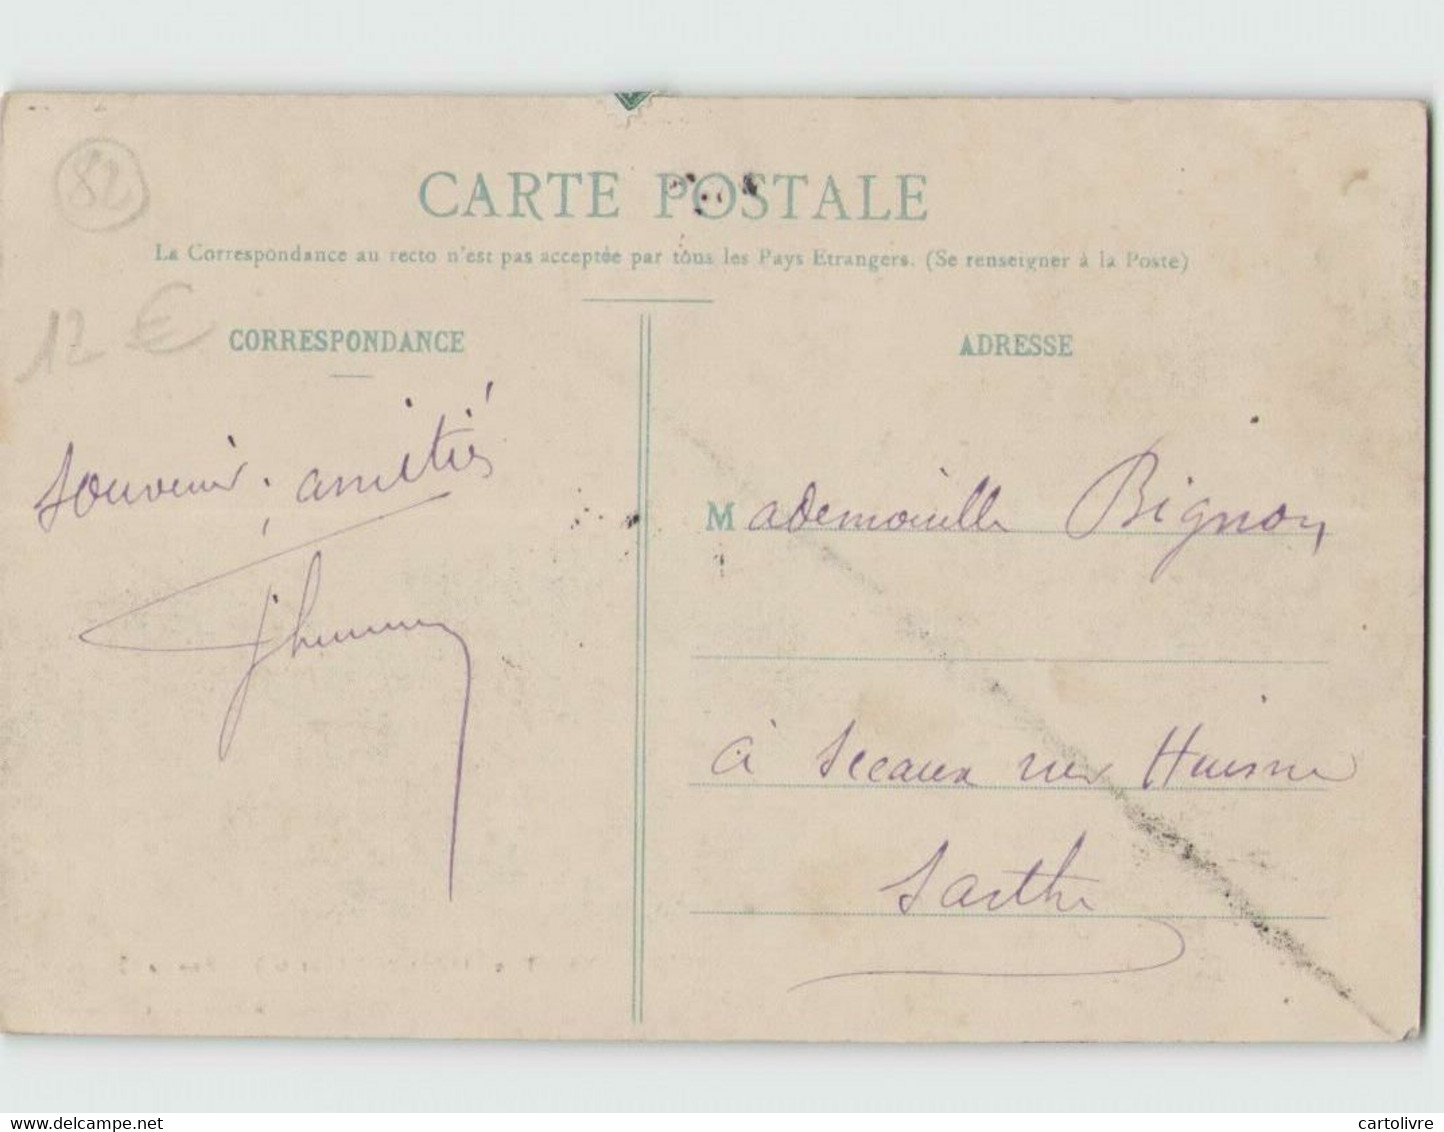 82
CARTE POSTALE
La Correspondance au recto n'est pas acceptée par tous les Pays Etrangers. (Se renseigner à la Poste)
12 €
CORRESPONDANCE
ADRESSE
Souvenir, amitiés
Mademoiselle Bignon
à Sceaux sur Huisne
Sarthe
www.delcampe.net
cartolivre